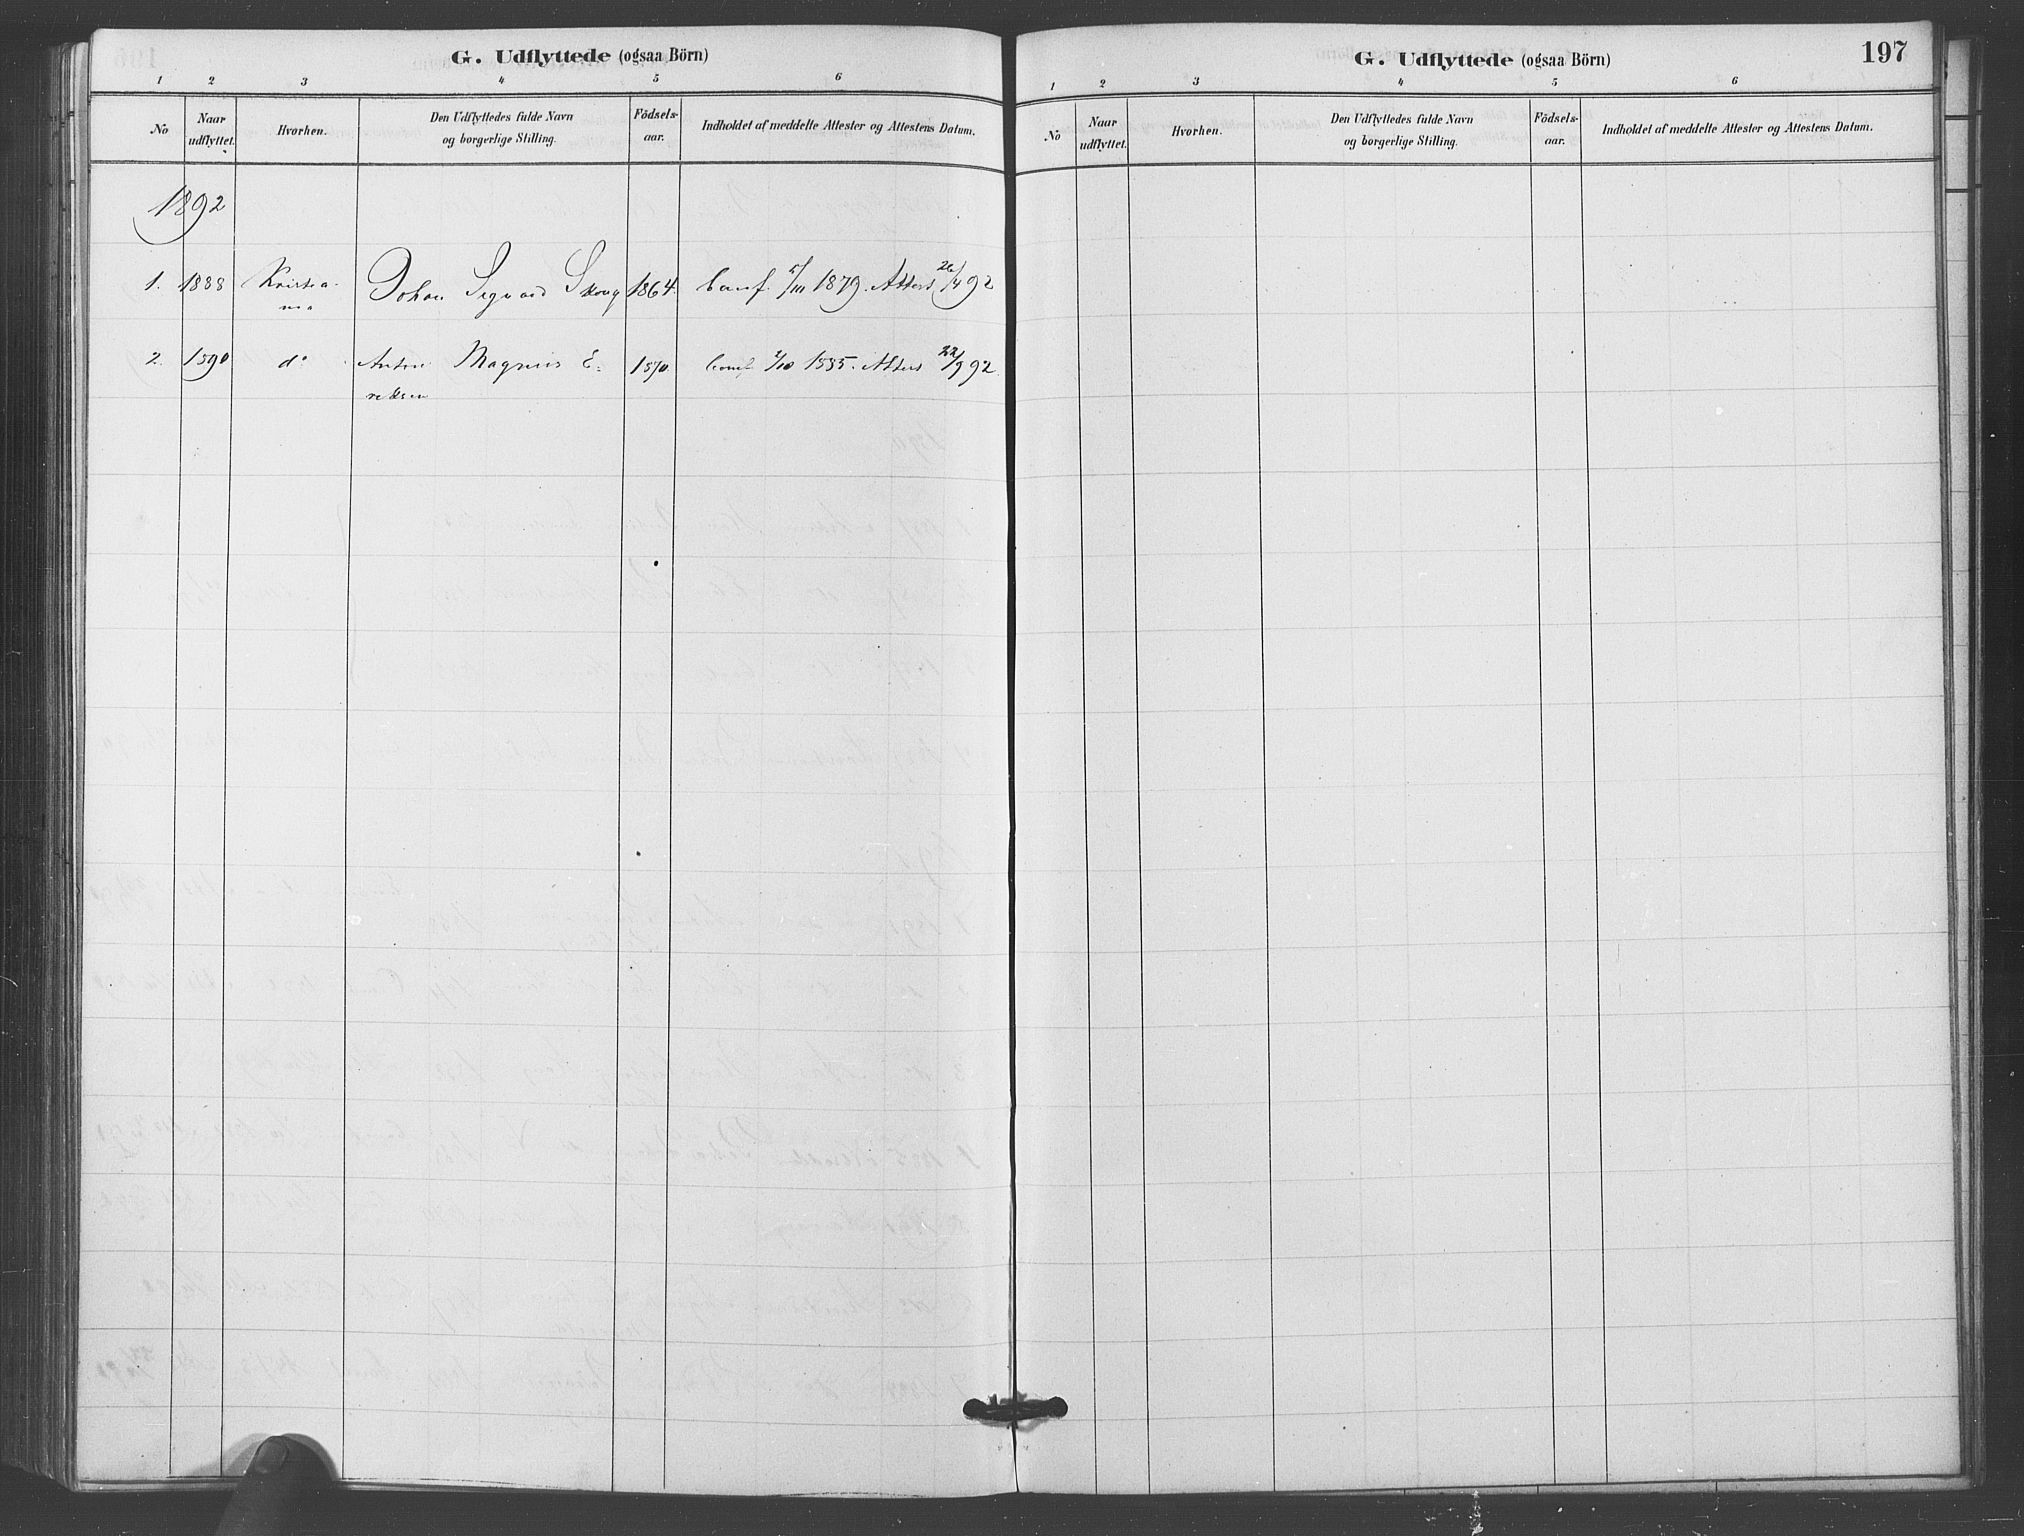 G. Udflyttede (ogsaa Börn)
1 2 3 4 5 6
No
Naar udflyttet.
Hvorhen.
Den Udflyttedes fulde Navn
og borgerlige Stilling.
Födsels-
aar.
Indholdet af meddelte Attester og Attestens Datum.
1892
1. 1888 Kristia- Johan Sigvard Skoug 1864. Conf. 5/10 1879. Attest 26/4 92
nia
2. 1890 do Anton Magnus E- 1870. Conf. 4/10 1885. Attest 22/9 92.
redsen
G. Udflyttede (ogsaa Börn) 197
1 2 3 4 5 6
No
Naar
udflyttet.
Hvorhen.
Den Udflyttedes fulde Navn
og borgerlige Stilling.
Födsels-
aar.
Indholdet af meddelte Attester og Attestens Datum.